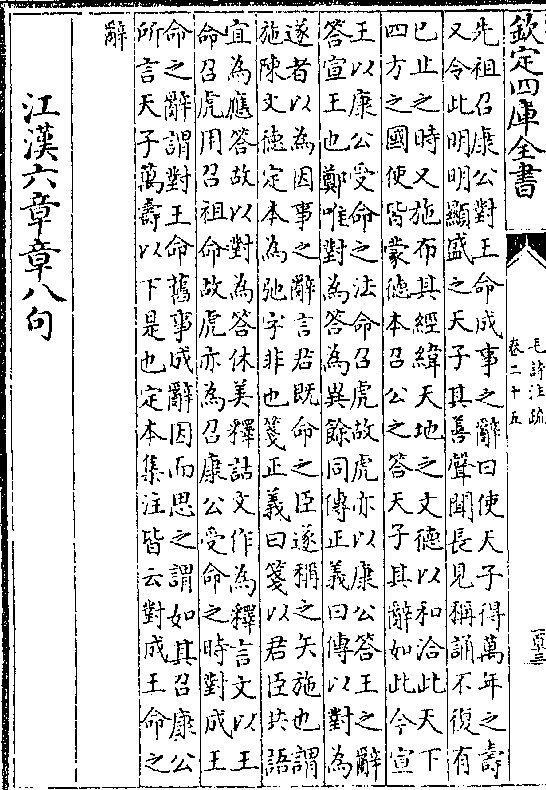 欽定四庫全書
毛詩注疏
卷二十五
先祖召康公對王命成事之辭曰使天子得萬年之壽
又令此明明顯盛之天子其善聲聞長見稱誦不復有
已止之時又施布其經緯天地之文德以和洽此天下
四方之國使皆蒙德本召公之答天子其辭如此今宣
王以康公受命之法命召虎故虎亦以康公答王之辭
答宣王也鄭唯對為答為異餘同傳正義曰傳以對為
遂者以為因事之辭言君既命之臣遂稱之矢施也謂
施陳文德定本為弛字非也箋正義曰箋以君臣共語
宜為應答故以對為答休美釋詁文作為釋言文以王
命召虎用召祖命故虎亦為召康公受命之時對成王
命之辭謂對王命舊事成辭因而思之謂如其召康公
所言天子萬壽以下是也定本集注皆云對成王命之
辭
江漢六章章八句